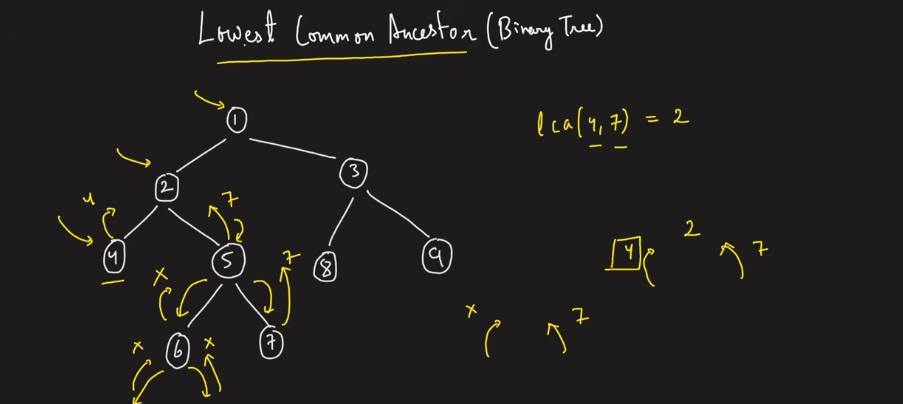 Lowest Common Ancestor (Binary Tree)
1
lca(4, 7) = 2
2
3
4
7
4
5
8
9
x
7
6
7
x
x
2
4
7
x
7